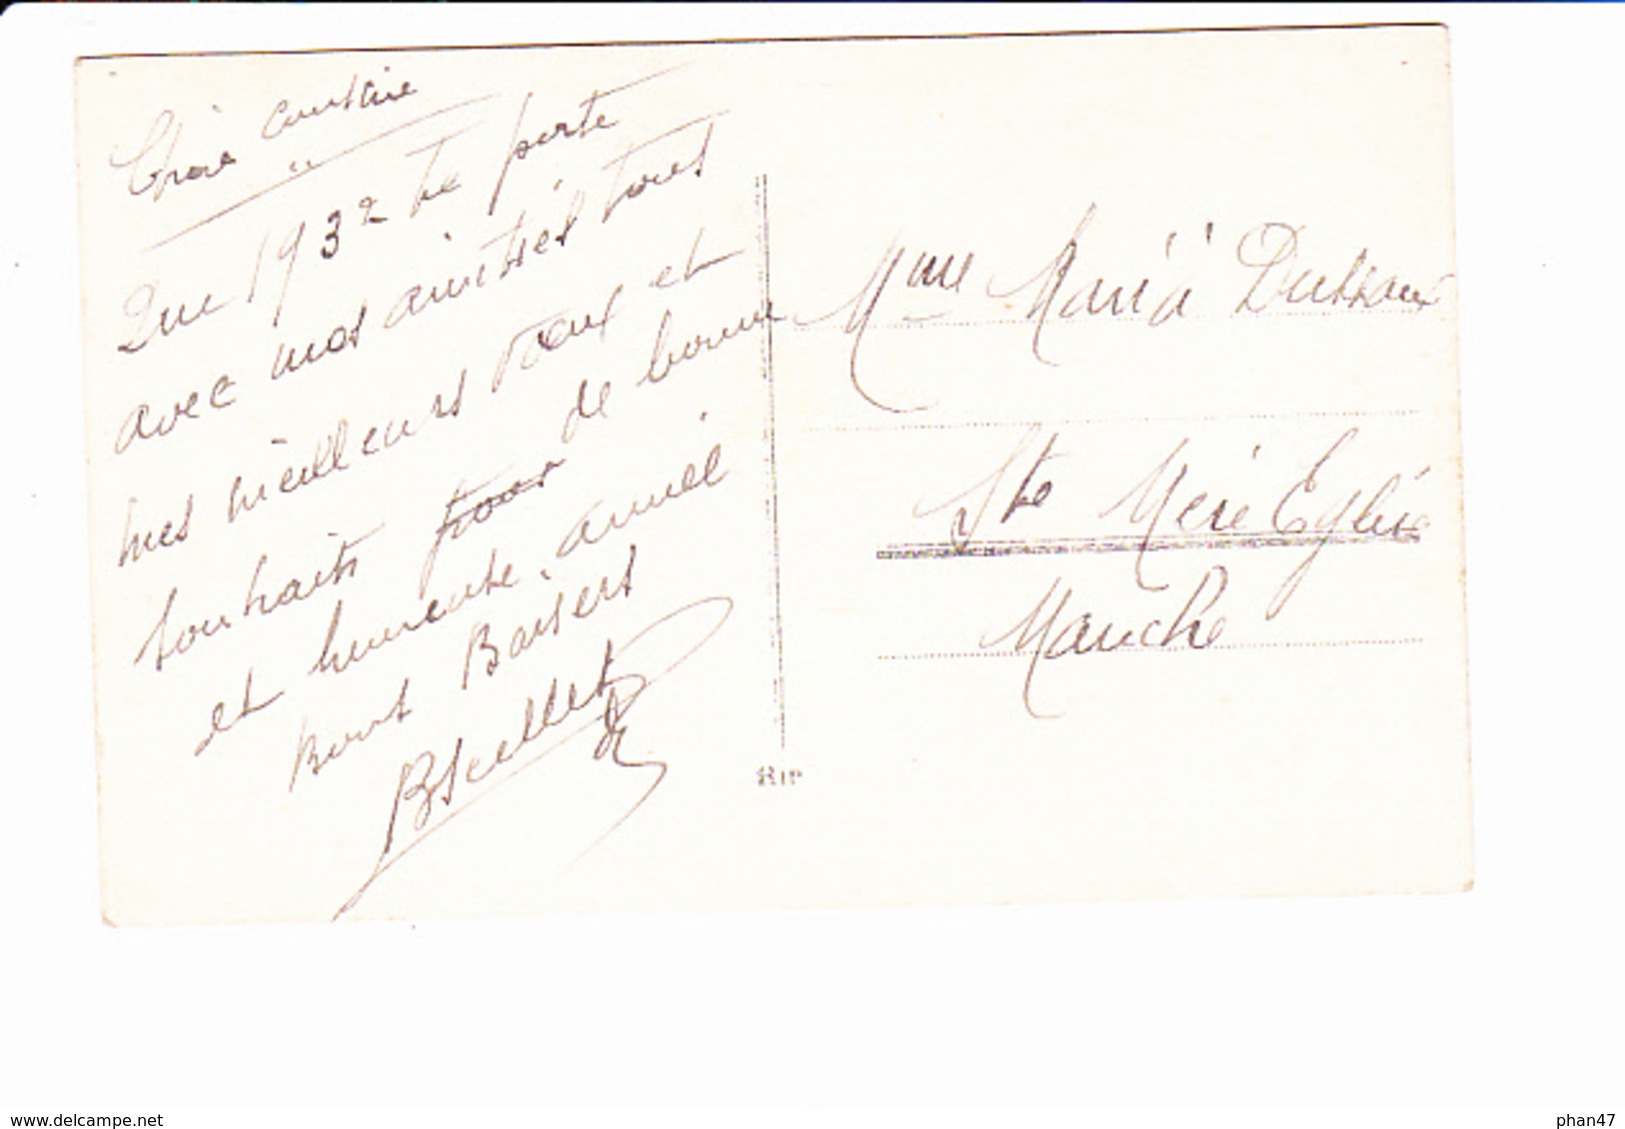 Chère cousine
Que 1932 te porte
avec mes amitiés tous
mes meilleurs vœux et
souhaits pour de bonne
et heureuse année
Bons Baisers
Mme Maria
Ste Mère Eglise
Manche
www.delcampe.net
phan47